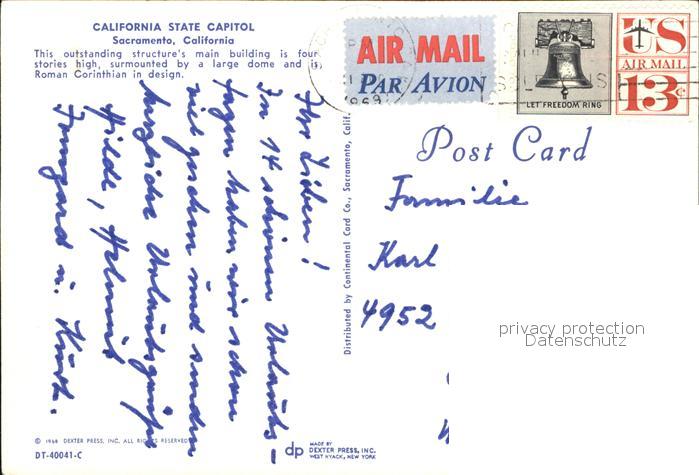 CALIFORNIA STATE CAPITOL
Sacramento, California
This outstanding structure's main building is four
stories high, surmounted by a large dome and is
Roman Corinthian in design.
AIR MAIL
PAR AVION
1969
LET FREEDOM RING
US
AIR MAIL
13¢
Post Card
Ihr Lieben!
In 14 schönen Urlaubs-
tagen haben wir schon
viel gesehen und senden
herzliche Urlaubsgrüße
Hilde, Helmut
Irmgard u. Kurt.
Distributed by Continental Card Co., Sacramento, Calif.
Familie
Karl
4952
privacy protection
Datenschutz
© 1968 DEXTER PRESS, INC. ALL RIGHTS RESERVED
DT-40041-C
dp
MADE BY
DEXTER PRESS, INC.
WEST NYACK, NEW YORK